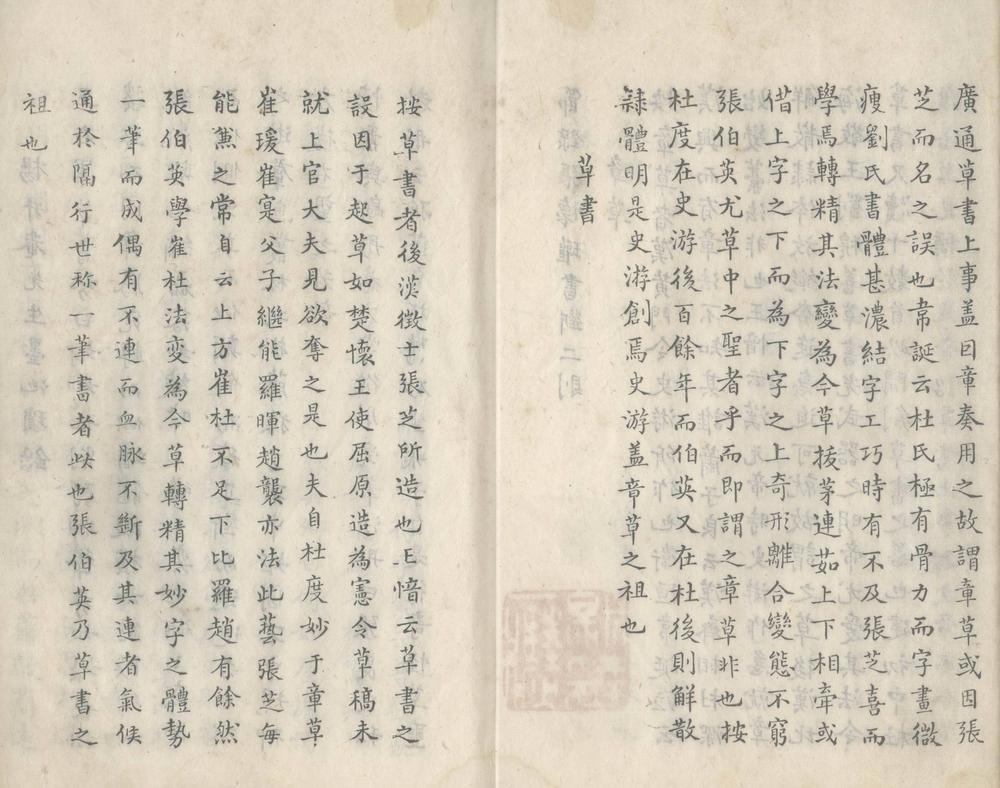 廣通草書上事盖曰章奏用之故謂章草或因張
芝而名之誤也韋誕云杜氏極有骨力而字畫微
瘦劉氏書體甚濃結字工巧時有不及張芝喜而
學焉轉精其法變為今草拔茅連茹上下相牽或
借上字之下而為下字之上奇形離合變態不窮
張伯英尤草中之聖者乎而即謂之章草非也按
杜度在史游後百餘年而伯英又在杜後則解散
隷體明是史游創焉史游盖章草之祖也
草書
按草書者後漢徵士張芝所造也王愔云草書之
設因于起草如楚懷王使屈原造為憲令草稿未
就上官大夫見欲奪之是也夫自杜度妙于章草
崔瑗崔寔父子繼能羅暉趙襲亦法此藝張芝每
能兼之常自云上方崔杜不足下比羅趙有餘然
張伯英學崔杜法变為今草轉精其妙字之體勢
一筆而成偶有不連而血脉不斷及其連者氣候
通於隔行世称一筆書者此也張伯英乃草書之
祖也